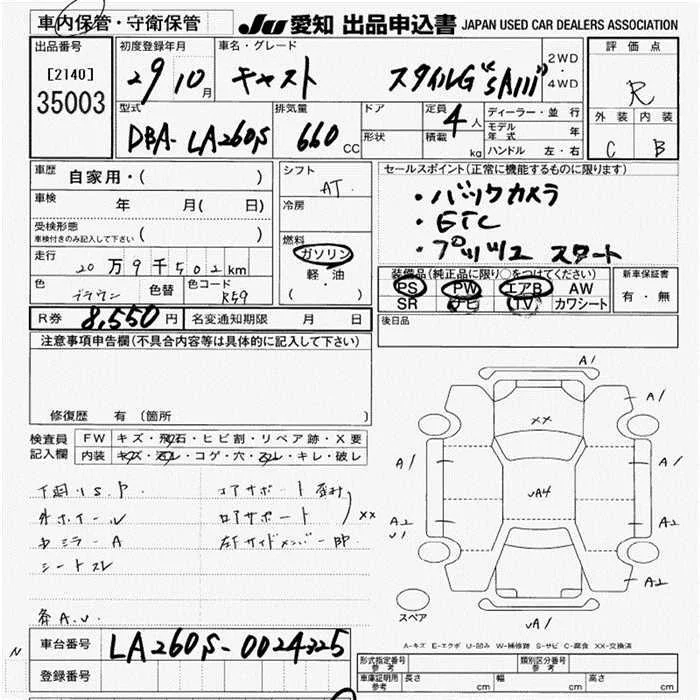 車内保管・守衛保管
JU 愛知 出品申込書 JAPAN USED CAR DEALERS ASSOCIATION
出品番号
[2140]
35003
初度登録年月
29 10月
車名・グレード
キャスト スタイルG"SAⅢ"
2WD
・
4WD
評価点
R
外装 内装
C B
型式
DBA- LA260S
排気量
660 CC
ドア
形状
定員
4人
積載 kg
ディーラー・並行
モデル年式 年
ハンドル 左・右
車歴
自家用・( )
車検
年 月( 日)
受検形態
車検付きのみ記入して下さい ( )
走行
20万9千502km
色
ブラウン
色替
色コード
R59
シフト
AT
冷房
燃料
ガソリン
軽・油
( )
セールスポイント(正常に機能するものに限ります)
・バックカメラ
・ETC
・プッシュ スタート
装備品(純正品に限り○をつけてください)
PS PW エアB AW
SR ナビ TV カワシート
新車保証書
有・無
R券 8,550円
名変通知期限 月 日
後日品
注意事項申告欄(不具合内容等は具体的に記入して下さい)
修復歴 有 (箇所 )
検査員
記入欄
FW キズ・飛石・ヒビ割・リペア跡・X要
内装 キズ・汚レ・コゲ・穴・スレ・キレ・破レ
下廻りS.P.
外ホイール
カミラーA
シートスレ
各A.U.
コアサポート
ロアサポート
左Fサイドメンバー
XX
A1
A1
A1
A1
XX
UA4
A2
U1
A2
A2
UA1
スペア
A-キズ E-エクボ U-凹み W-補修跡 S-サビ C-腐食 XX-交換済
車台番号
LA260S-0024325
N
登録番号
形式指定番号
参考
類別区分番号
参考
車庫証明用
参考
長さ cm
幅 cm
高さ cm